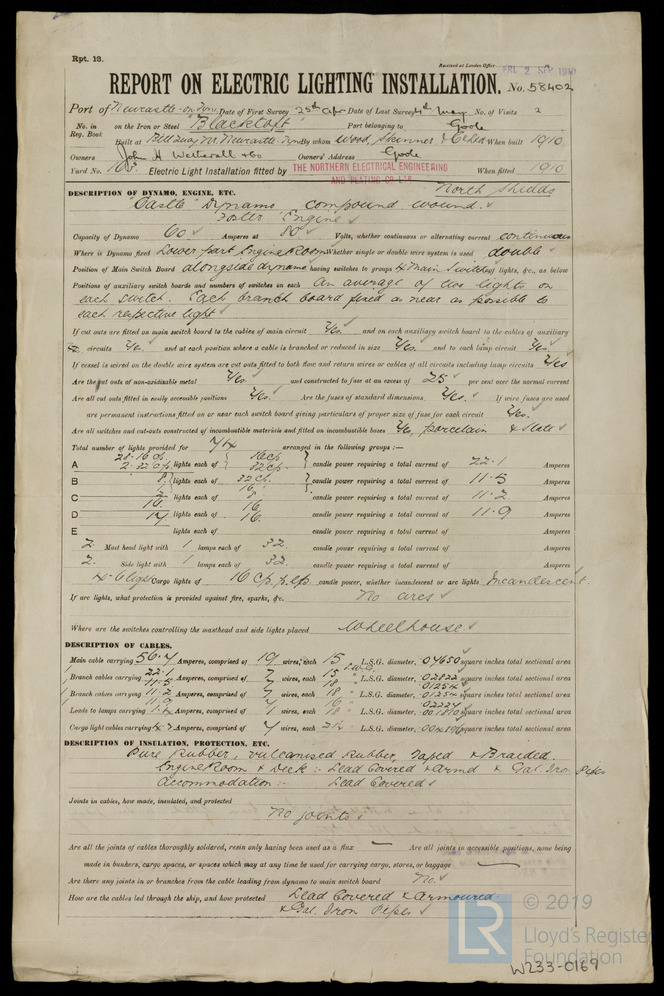 Rpt. 13.
Received at London Office FRI. 2 SEP 1910
REPORT ON ELECTRIC LIGHTING INSTALLATION. No. 58402
Port of Newcastle-on-Tyne Date of First Survey 25th Apr Date of Last Survey 4th May No. of Visits 2
No. in Reg. Book on the Iron or Steel "Blacktoft" Port belonging to Goole
Built at Bill Quay Nr. Newcastle-Tyne By whom Wood, Skinner & Co Ltd When built 1910
Owners John H Wetherall & Co Owners' Address Goole
Yard No. Electric Light Installation fitted by THE NORTHERN ELECTRICAL ENGINEERING AND PLATING CO. LTD. When fitted 1910
North Shields
DESCRIPTION OF DYNAMO, ENGINE, ETC.
"Castle" Dynamo compound wound.
Foster Engine
Capacity of Dynamo 60 Amperes at 80 Volts, whether continuous or alternating current continuous
Where is Dynamo fixed Lower part Engine Room Whether single or double wire system is used double
Position of Main Switch Board alongside dynamo having switches to groups 4 Main Switches of lights, &c., as below
Positions of auxiliary switch boards and numbers of switches on each An average of two lights on
each switch. Each branch board fixed as near as possible to
each respective light
If cut outs are fitted on main switch board to the cables of main circuit Yes and on each auxiliary switch board to the cables of auxiliary
circuits Yes and at each position where a cable is branched or reduced in size Yes and to each lamp circuit Yes
If vessel is wired on the double wire system are cut outs fitted to both flow and return wires or cables of all circuits including lamp circuits Yes
Are the cut outs of non-oxidizable metal Yes and constructed to fuse at an excess of 25 per cent over the normal current
Are all cut outs fitted in easily accessible positions Yes. Are the fuses of standard dimensions Yes. If wire fuses are used
are permanent instructions fitted on or near each switch board giving particulars of proper size of fuse for each circuit Yes.
Are all switches and cut-outs constructed of incombustible materials and fitted on incombustible bases Yes, porcelain & slate
Total number of lights provided for 74 arranged in the following groups :—
A 28-16 cp. 2-32 cp. lights each of 16 cp. 32 cp. candle power requiring a total current of 22.1 Amperes
B lights each of 32 cp. 16 candle power requiring a total current of 11.5 Amperes
C lights each of candle power requiring a total current of 11.2 Amperes
D lights each of 16. candle power requiring a total current of 11.9 Amperes
E lights each of candle power requiring a total current of Amperes
2. Mast head light with 1 lamps each of 32. candle power requiring a total current of Amperes
2. Side light with 1 lamps each of 32 candle power requiring a total current of Amperes
4-6 light Cargo lights of 16 cp. candle power, whether incandescent or arc lights Incandescent.
If arc lights, what protection is provided against fire, sparks, &c. No arcs
Where are the switches controlling the masthead and side lights placed Wheelhouse
DESCRIPTION OF CABLES.
Main cable carrying 56.7 Amperes, comprised of 19 wires, each 15 L.S.G. diameter, .07650 square inches total sectional area
Branch cables carrying 22.1 11.5 Amperes, comprised of 7 wires, each 15 L.S.G. diameter, .02822 .01254 square inches total sectional area
Branch cables carrying 11.2 11.9 Amperes, comprised of 7 wires, each 18 L.S.G. diameter, .01254 square inches total sectional area
Leads to lamps carrying Amperes, comprised of 1 wires, each 18 L.S.G. diameter, .001810 square inches total sectional area
Cargo light cables carrying Amperes, comprised of wires, each L.S.G. diameter, square inches total sectional area
DESCRIPTION OF INSULATION, PROTECTION, ETC.
Pure Rubber, Vulcanised Rubber, Taped & Braided.
Engine Room & Deck :- Lead Covered & Armd & Gal. Iron Pipes
Accommodation :- Lead Covered
Joints in cables, how made, insulated, and protected
No joints
Are all the joints of cables thoroughly soldered, resin only having been used as a flux — Are all joints in accessible positions, none being
made in bunkers, cargo spaces, or spaces which may at any time be used for carrying cargo, stores, or baggage —
Are there any joints in or branches from the cable leading from dynamo to main switch board No.
How are the cables led through the ship, and how protected Lead Covered & Armoured
& Gal. Iron Pipes
© 2019
LR Lloyd's Register
Foundation
W233-0169